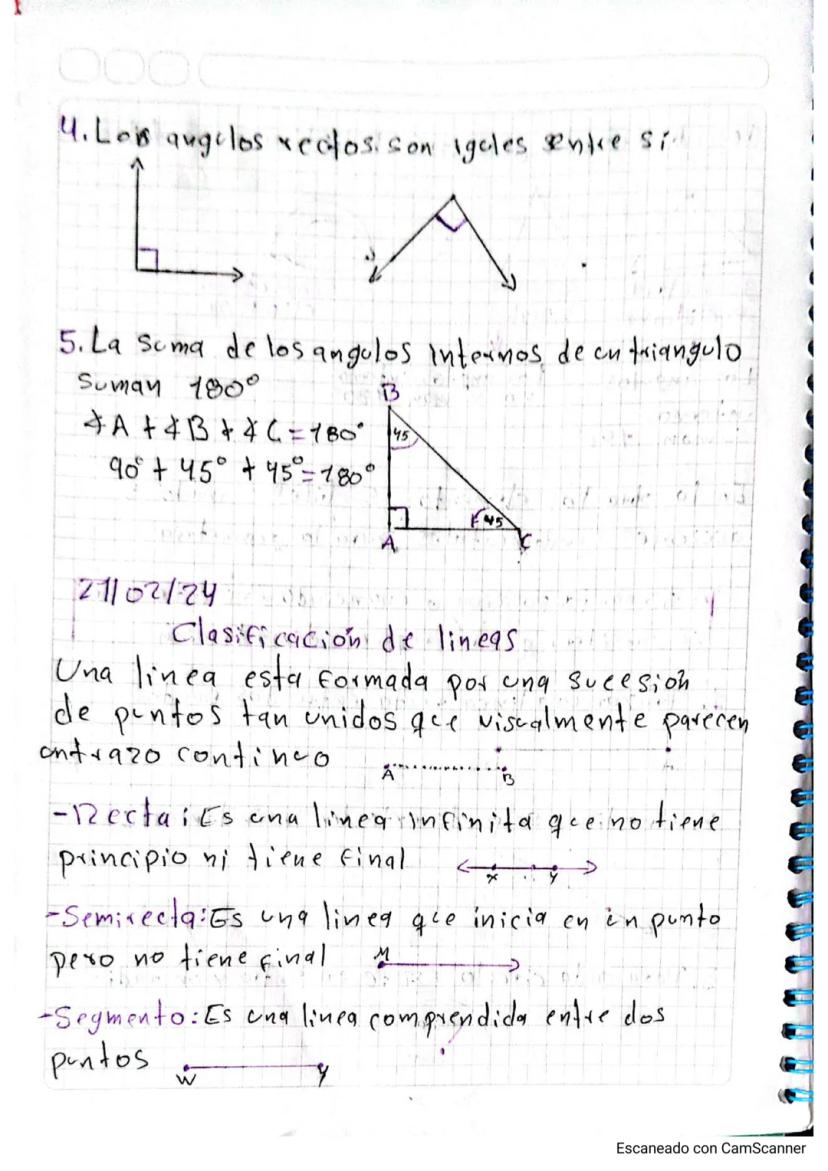 4. Los angulos rectos son igules entre sí
5. La suma de los angulos internos de un triangulo
suman 180°
∡A + ∡B + ∡C = 180°
90° + 45° + 45° = 180°
B
45
45
A
C
21/02/24
Clasificación de lineas
Una linea esta formada por una sucesión
de puntos tan unidos que visualmente parecen
un trazo continuo
A
B
-Recta: Es una linea infinita que no tiene
principio ni tiene final
x
y
-Semirecta: Es una linea que inicia en un punto
pero no tiene final
M
-Segmento: Es una linea comprendida entre dos
puntos
W
y
Escaneado con CamScanner